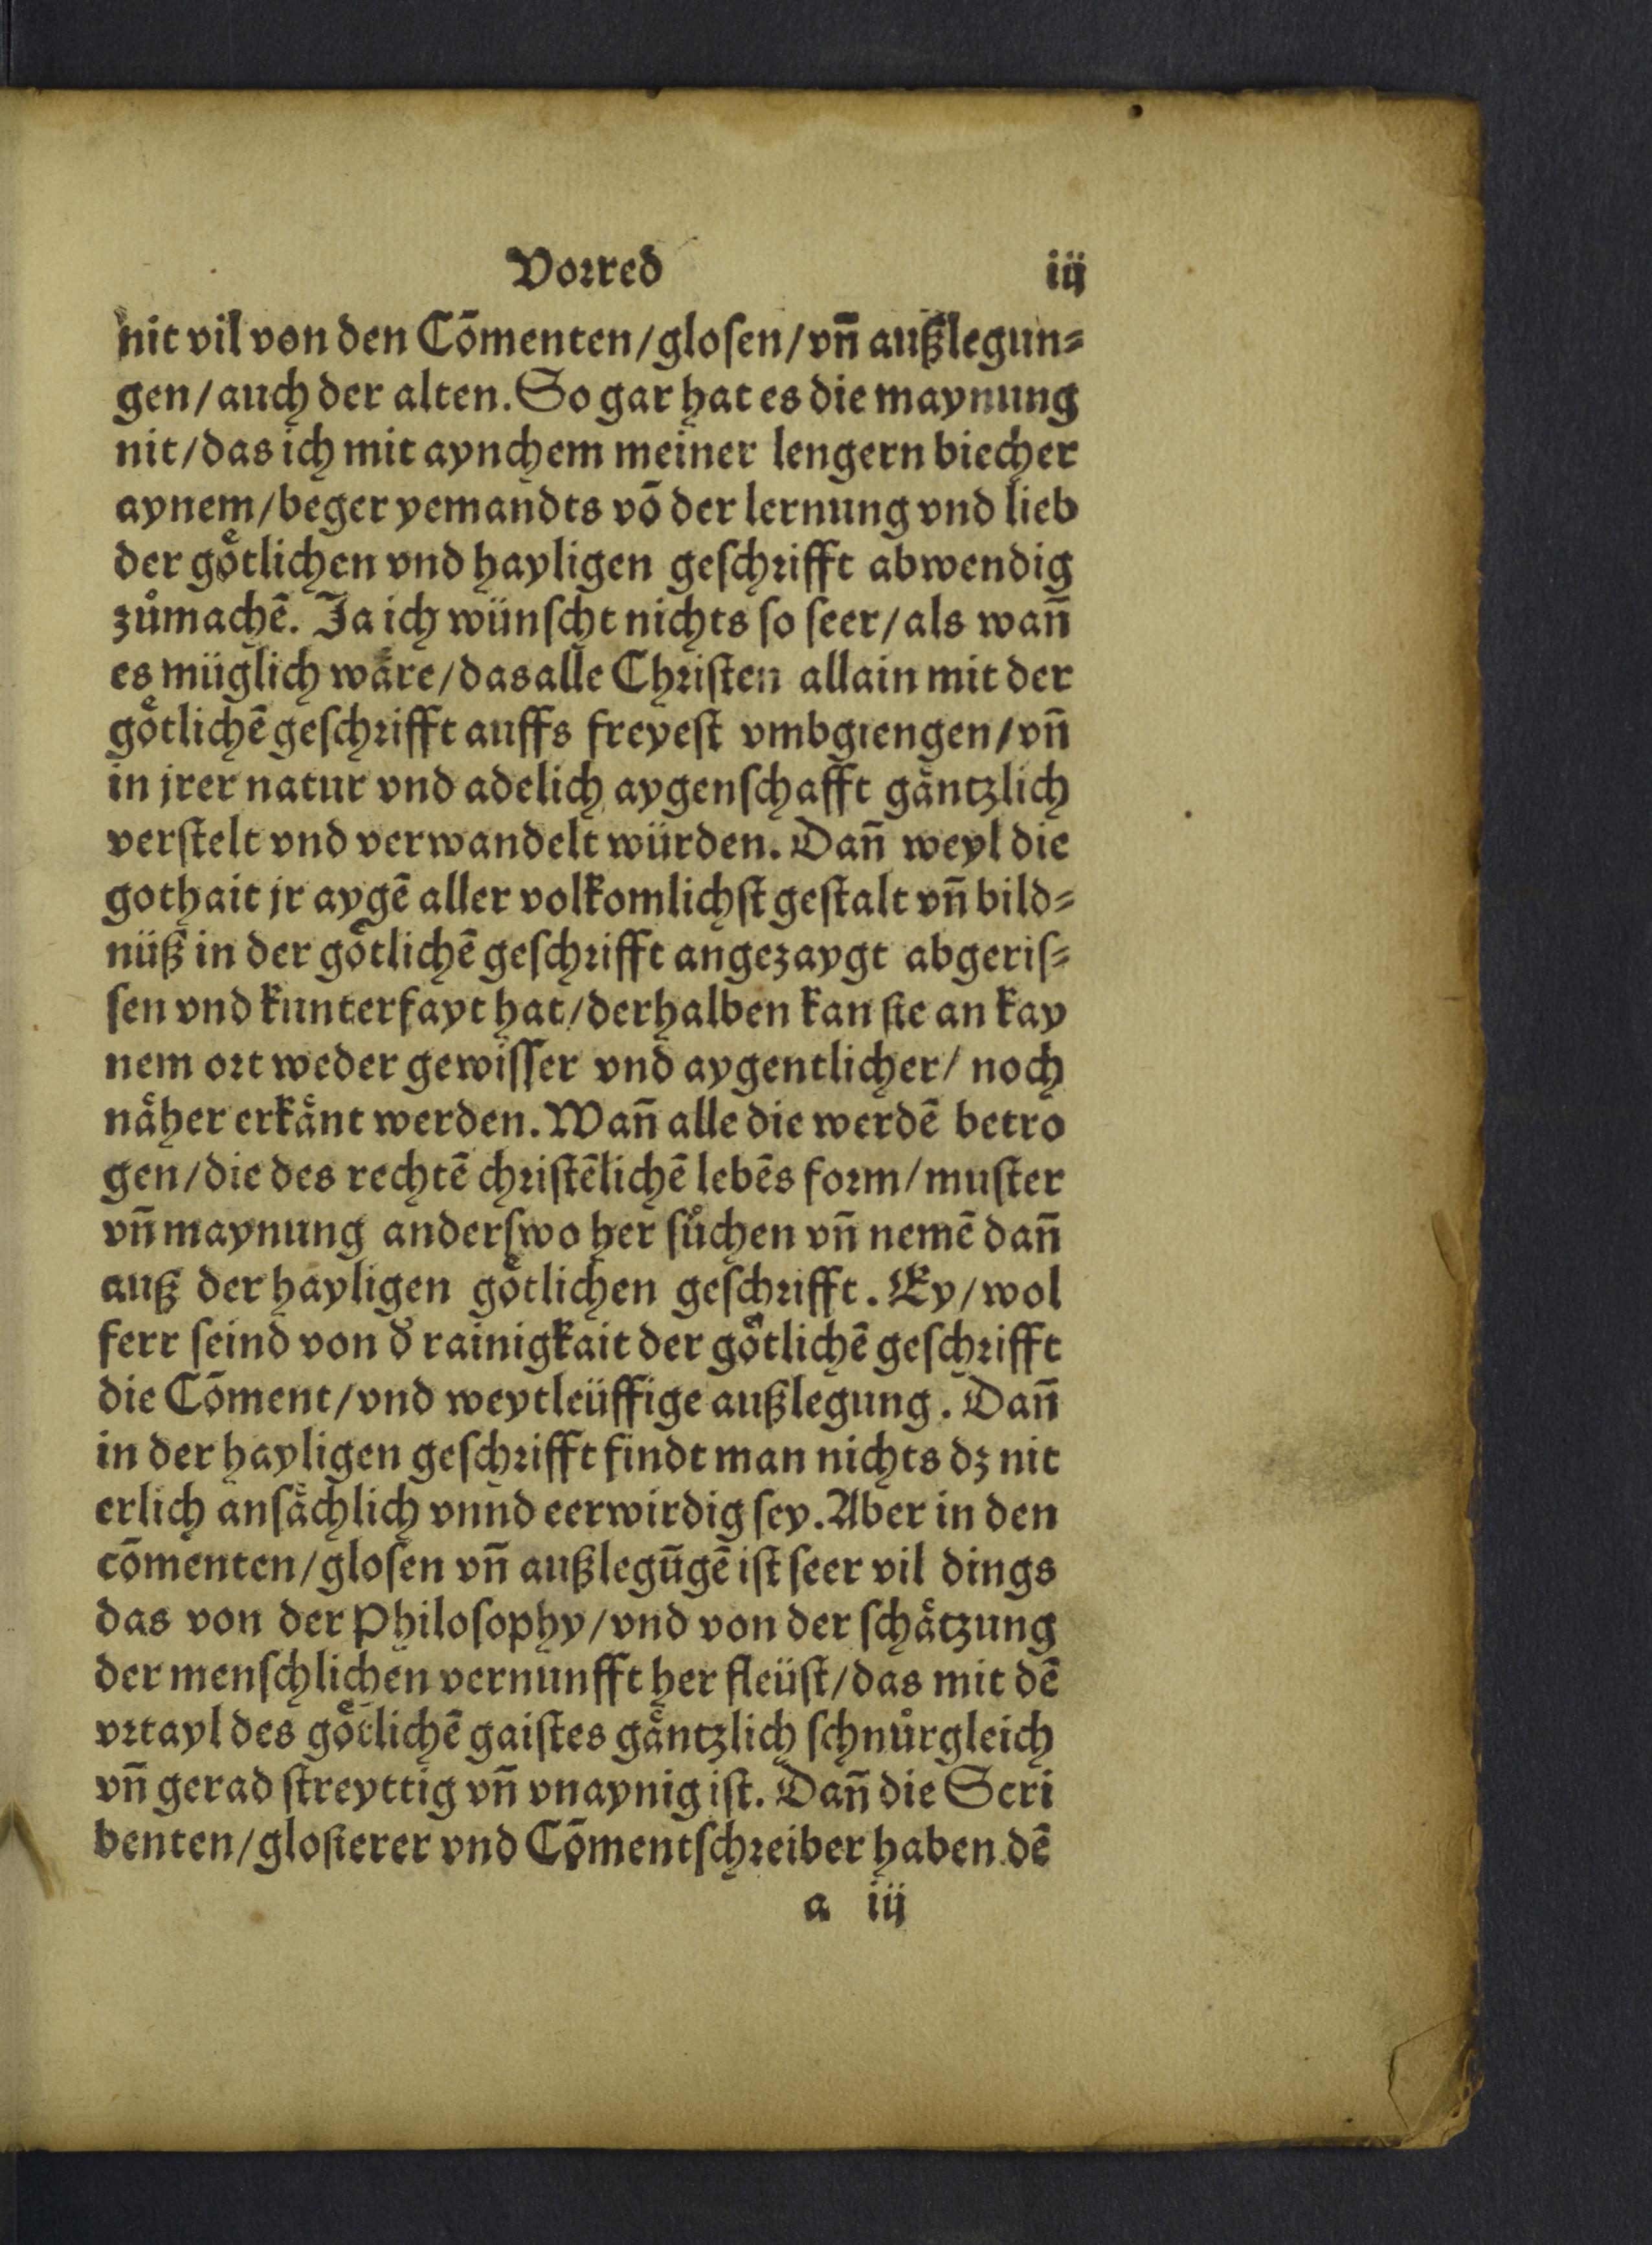 Vorred iij
nit vil von den Cōmenten/gloſen/vn̄ außlegun⸗
gen/auch der alten. So gar hat es die maynung
nit/das ich mit aynchem meiner lengern biecher
aynem/beger yemandts vō der lernung vnd lieb
der goͤtlichen vnd hayligen geſchrifft abwendig
zůmachē. Ja ich wünſcht nichts ſo ſeer/als wan̄
es müglich waͤre/das alle Chriſten allain mit der
goͤtlichē geſchrifft auffs freyeſt vmbgiengen/vn̄
in jrer natur vnd adelich aygenſchafft gaͤntzlich
verſtelt vnd verwandelt würden. Dan̄ weyl die
gothait jr aygē aller volkomlichſt geſtalt vn̄ bild⸗
nüß in der goͤtlichē geſchrifft angezaygt abgeriſ⸗
ſen vnd kunterfayt hat/derhalben kan ſie an kay
nem ort weder gewiſſer vnd aygentlicher/ noch
naͤher erkaͤnt werden. Wan̄ alle die werdē betro
gen/die des rechtē chriſtēlichē lebēs form/muſter
vn̄ maynung anderſwo her ſůchen vn̄ nemē dan̄
auß der hayligen goͤtlichen geſchrifft. Ey/wol
ferr ſeind von d̓ rainigkait der goͤtlichē geſchrifft
die Cōment/vnd weytleüffige außlegung. Dan̄
in der hayligen geſchrifft findt man nichts dz nit
erlich anſaͤchlich vnnd eerwirdig ſey. Aber in den
cōmenten/gloſen vn̄ außlegūgē iſt ſeer vil dings
das von der Philoſophy/vnd von der ſchaͤtzung
der menſchlichen vernunfft her fleüſt/das mit dē
vrtayl des goͤtlichē gaiſtes gaͤntzlich ſchnůrgleich
vn̄ gerad ſtreyttig vn̄ vnaynig iſt. Dan̄ die Scri
benten/gloſierer vnd Cōmentſchreiber haben dē
a iij